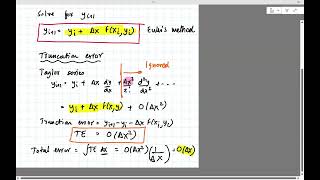 Solve for yᵢ₊₁
yᵢ₊₁ = yᵢ + Δx f(xᵢ, yᵢ) Euler's method
Truncation error
Ignored
Taylor series
yᵢ₊₁ = yᵢ + Δx dy/dx + Δx²/2! d²y/dx² + ...
= yᵢ + Δx f(xᵢ, y) + O(Δx²)
Truncation error = yᵢ₊₁ - yᵢ - Δx f(xᵢ, yᵢ)
TE = O(Δx²)
Total error = ∫TE dx = O(Δx²) (1/Δx) = O(Δx)